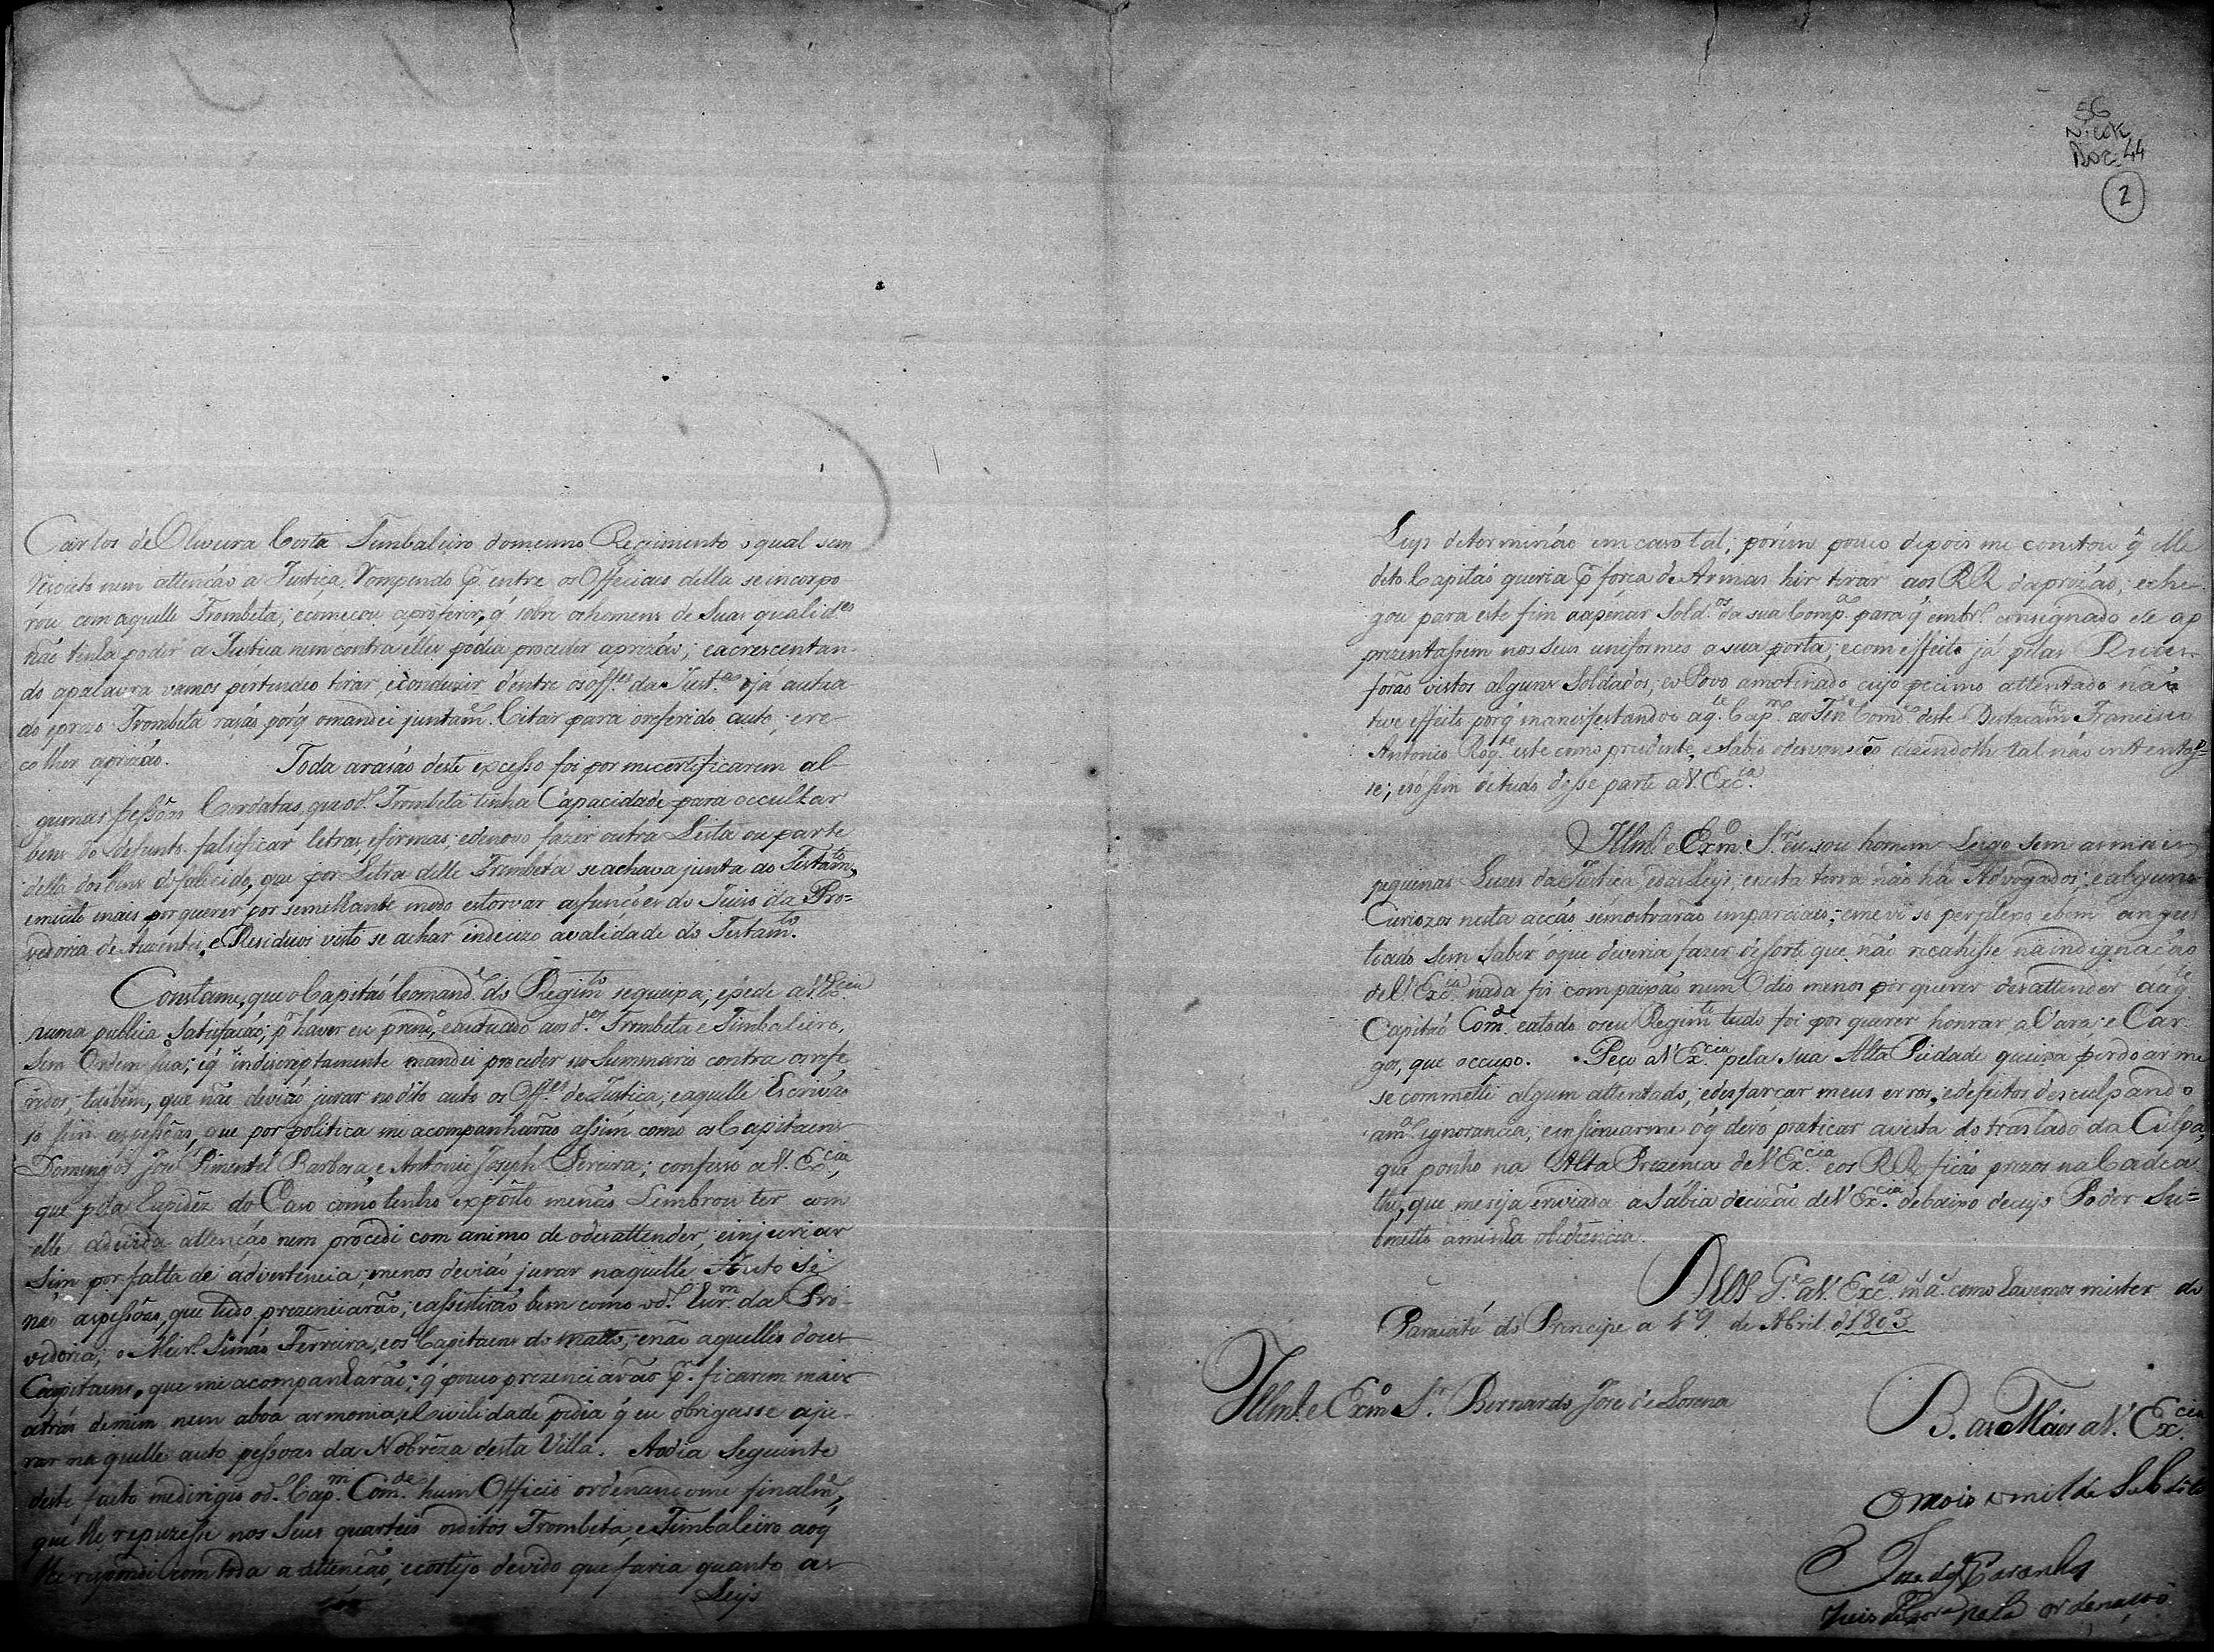 Carlos de Oliveira Costa Timbaleiro domesmo Regimento o qual sem
respeito nem attenção a Justiça, Rompendo pr. entre os Officiaes della se incorpo
rou com aquelle Trombeta; ecomeçou aproferir, q̃ sobre os homens de Suas qualid.es
não tinha poder a Justiça nem contra elles podia proceder aprizão; eacrescentan-
do apalavra vamos pertendeo tirar, econduzir d'entre os off.es da Just.a o já autoa
do eprezo Trombeta razão porq̃ omandei juntam.e Citar para oreferido auto, ere
colher aprizão. Toda arazão deste excesso foi por mecertificarem al
gumas pessôas Cordatas, que o d.o Trombeta tinha Capacidade para occultar
bens do defunto falsificar letras, efirmas; edenovo fazer outra Lista ou parte
della dos bens dofalecido, que por Letra delle Trombeta seachava junta ao Testam.to,
emuito mais por querer por semilhante modo estorvar asfunções do Juizo da Pro=
vedoria de Auzentes, e Residuos visto se achar indecizo avalidade do Testam.to
Constame, que o Capitão Comand.e do Regim.to sequeixa, epede a V. Ex.cia
numa publica Satisfação; pr haver eu prendo, eautuado aos d.os Trombeta e Timbaleiro,
Sem Ordem sua; eq̃ indiscreptamente mandei proceder no Summario contra osrefe
ridos; tãobem, que não devião jurar nodito auto os Off.es de Justiça, eaquelle Escrivão
só sim aspessôas, que por politica me acompanharão assim como os Capitaens
Domingos José Pimentel Barbosa, e Antonio Joseph Pereira; confesso a V. Ex.cia,
que pela Rapidêz do Caso como tenho expôsto menão Lembrou ter com
elle adevida attenção nem procedi com animo de odesattender, einjuriar
Sim por falta de advertencia; menos devião jurar naquelle Auto se
não aspessôas, que tudo prezenciarão; eassistirão bem como o d.o da Pro-
vedoria; o Meir.o Simão Ferreira, eos Capitaens do matto, enão aquelles dous
Capitaens, que me acompanharão; q̃ pouco prezenciarão pr. ficarem mais
atrás demim nem aboa armonia, eCivilidade pedia q̃ eu obrigasse aju-
rar na quelle auto pessoas da Nobrêza desta Villa. Aodia Seguinte
deste facto medirigio o d.o Cap.m Com.de hum Officio ordenandome finalm.e,
que lhe repuzesse nos Seus quarteis os ditos Trombeta, e Timbaleiro aoq̃
lhe respondi com toda a attenção, ecortejo devido que faria quanto as
Leys
56
Doc. 44
2
Leys determinão em caso tal, porém pouco depois me constou q̃ elle
dito Capitão queria pr força de Armas hir tirar aos RR daprizão; eche
gou para este fim aapenar Sold.os da sua Comp.a para q̃ consignado se ap
prezentassem nos Seus uniformes a sua porta; ecom effeito já pelas
forão vistos alguns Soldados, eo Povo amotinado cujo pecimo attentado não
teve effeito porq̃ manifestandoo aq.e Cap.m ao Ten.e Com.e deste Destacam.to Francisco
Antonio este como prudente, e Sabio odesvaneceo dizendolhe tal não intentas-
se; esó sim detudo desse parte a V. Ex.cia
Illmo. e Exmo. Sr. eu sou homem Leigo Sem as mais
pequenas Luzes da Justiça, edas Leys, enesta terra não há Advogados, ealguns
Curiozos nesta acção semostrarão imparciaes; emevi só perplexo ebem angus
tiado sem saber oque deveria fazer desorte que não recahisse na indignação
deV. Ex.cia nada fis compaixão nem Odio menos por querer desattender áaq.e
Capitão Com.e eatodo oseu Regim.to tudo foi por querer honrar aVara e Car
gos, que occupo. Peço a V. Ex.cia pela Sua Alta Piedade queira perdoar me
se commetti algum attentado; edesfarçar meus erros, edefeitos desculpando
am.a ignorancia, ensinarme oq̃ devo praticar avista do traslado da Culpa,
que ponho na Alta Prezença deV. Ex.cia eos RR ficão prezos na Cadea
thé que me seja enviada a Sábia decizão deV. Ex.cia debaixo decujo Poder Su=
bmetto aminha obediencia.
Deos G.e aV. Ex.cia m.s a.s como havemos mister do
Paracatú do Principe a 19 de Abril d'1803
Illmo. e Exmo. Sr. Bernardo José de Lorena
B. as Mãos a V. Ex.cia
O mais omilde Subdito
Juis de pela ordenação